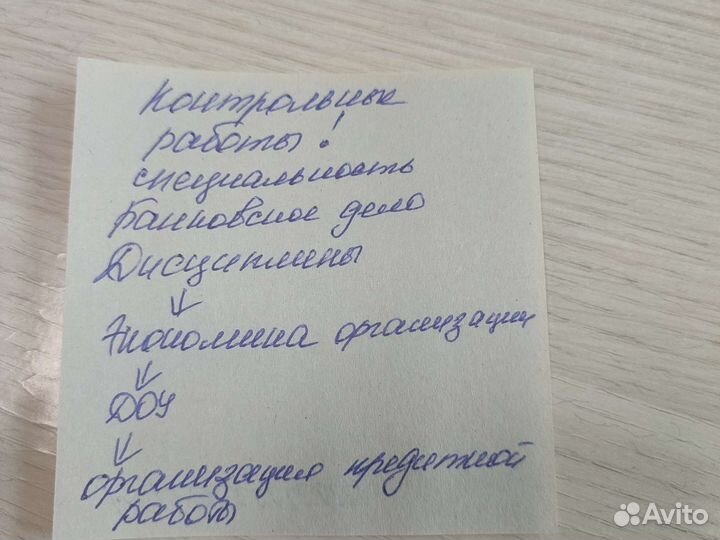 Контрольные
работы!
специальность
Банковское дело
Дисциплины
↓
Экономика организации
↓
ДОУ
↓
организация кредитной
работы
Avito